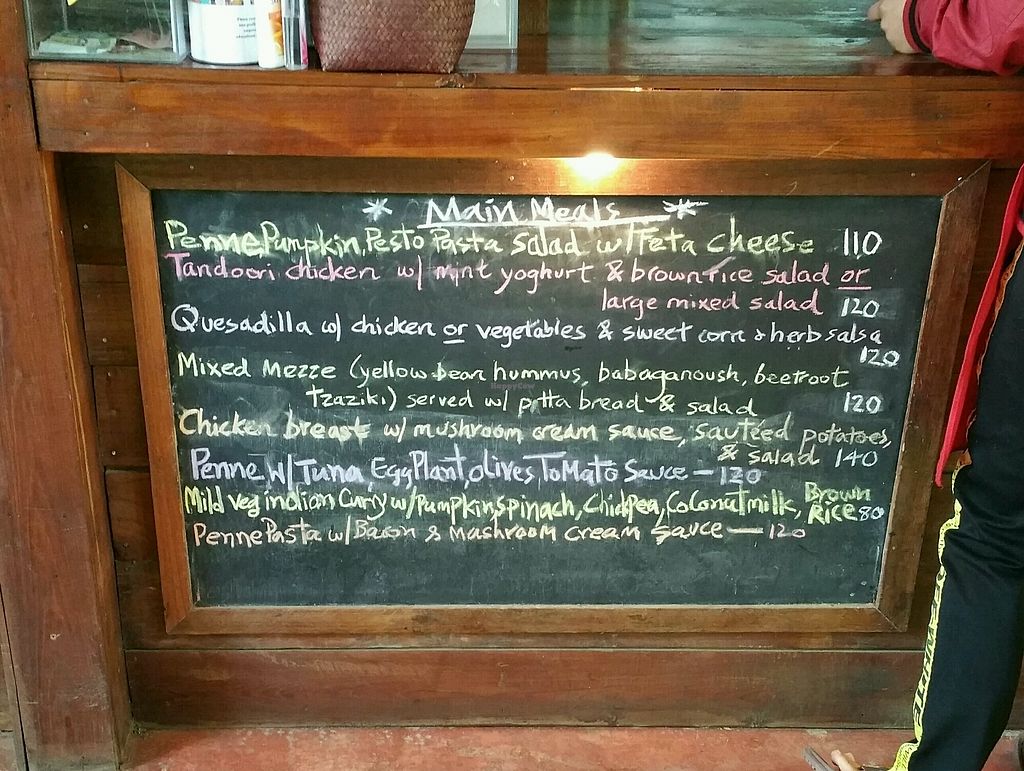 * Main Meals *
Penne, Pumpkin, Pesto Pasta Salad w/ Feta cheese 110
Tandoori chicken w/ mint yoghurt & brown rice salad or
large mixed salad 120
Quesadilla w/ chicken or vegetables & sweet corn & herb salsa
120
Mixed Mezze (yellow bean hummus, babaganoush, beetroot
tzaziki) served w/ pitta bread & salad 120
Chicken breast w/ mushroom cream sauce, sautéed potatoes,
& salad 140
Penne W/ Tuna, EggPlant, olives, ToMato Sauce — 120
Mild veg indian Curry w/ Pumpkin, Spinach, Chickpea, Coconut milk, Brown
Rice 80
Penne Pasta w/ Bacon & Mashroom cream sauce — 120